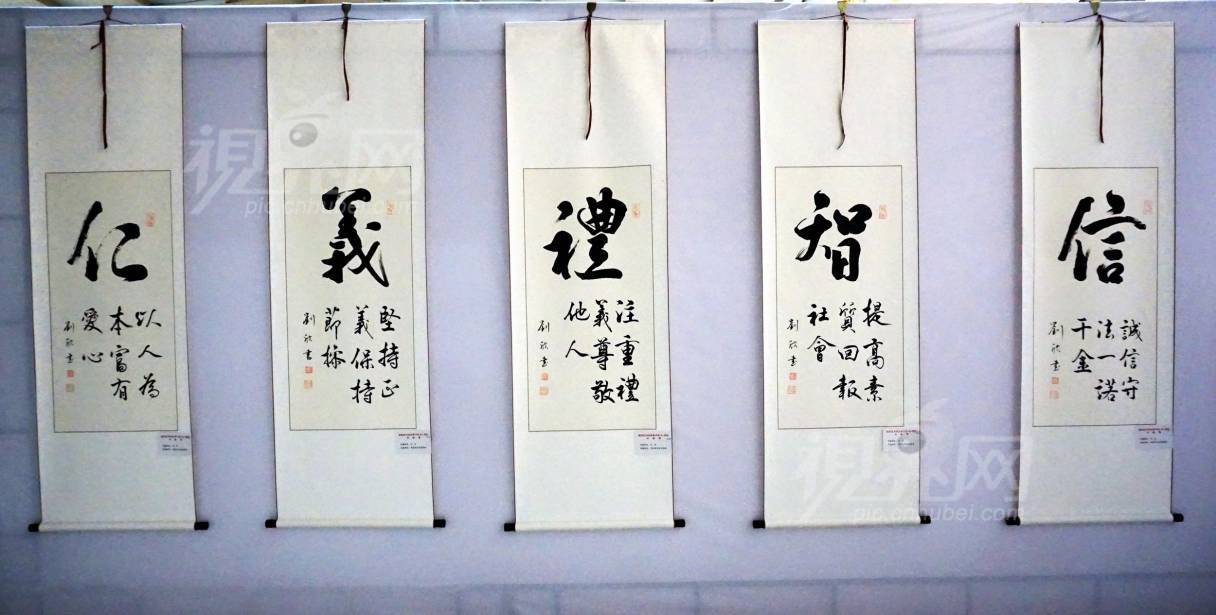 仁
以人為
本富有
愛心
劉欣書
義
堅持正
義保持
節操
劉欣書
禮
注重禮
義尊敬
他人
劉欣書
智
提高素
質回報
社會
劉欣書
信
誠信守
法一諾
千金
劉欣書
視界网
pic.cnhubei.com
視界网
pic.cnhubei.com